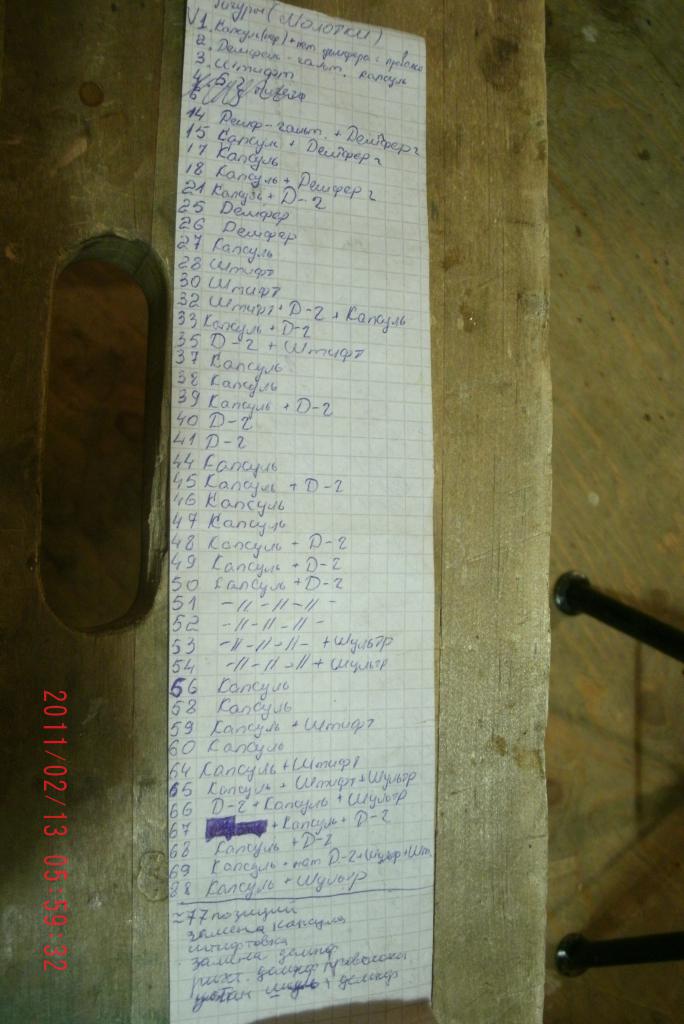 Фигуры (Молотки)
V1. Капсуль(пер) + нет демфера с проволо
2. Демфель-гальт. капсуль
3. Штифт
4
5
6
14 Демф-гальт. + Демфер г
15 Капсуль + Демфер г
17 Капсуль
18 Капсуль + Демфер г
21 Капсуль + D-г
25 Демфер
26 Демфер
27 Капсуль
28 Штифт
30 Штифт
32 Штифт + D-г + Капсуль
33 Капсуль + D-г
35 D-г + Штифт
37 Капсуль
38 Капсуль
39 Капсуль + D-г
40 D-г
41 D-г
44 Капсуль
45 Капсуль + D-г
46 Капсуль
47 Капсуль
48 Капсуль + D-г
49 Капсуль + D-г
50 Капсуль + D-г
51 -//-//-//-
52 -//-//-//-
53 -//-//-//- + Шультр
54 -//-//-// + Шультр
56 Капсуль
58 Капсуль
59 Капсуль + Штифт
60 Капсуль
64 Капсуль + Штифт
65 Капсуль + Штифт + Шультр
66 D-г + Капсуль + Шультр
67 + Капсуль + D-г
68 Капсуль + D-г
69 Капсуль + нет D-г + Шульр + Шт.
88 Капсуль + Шультр
≈77 позиций
замена капсуля
штифтовка
замена демпф
рихт. демпф проволоки
демпф
2011/02/13 05:59:32